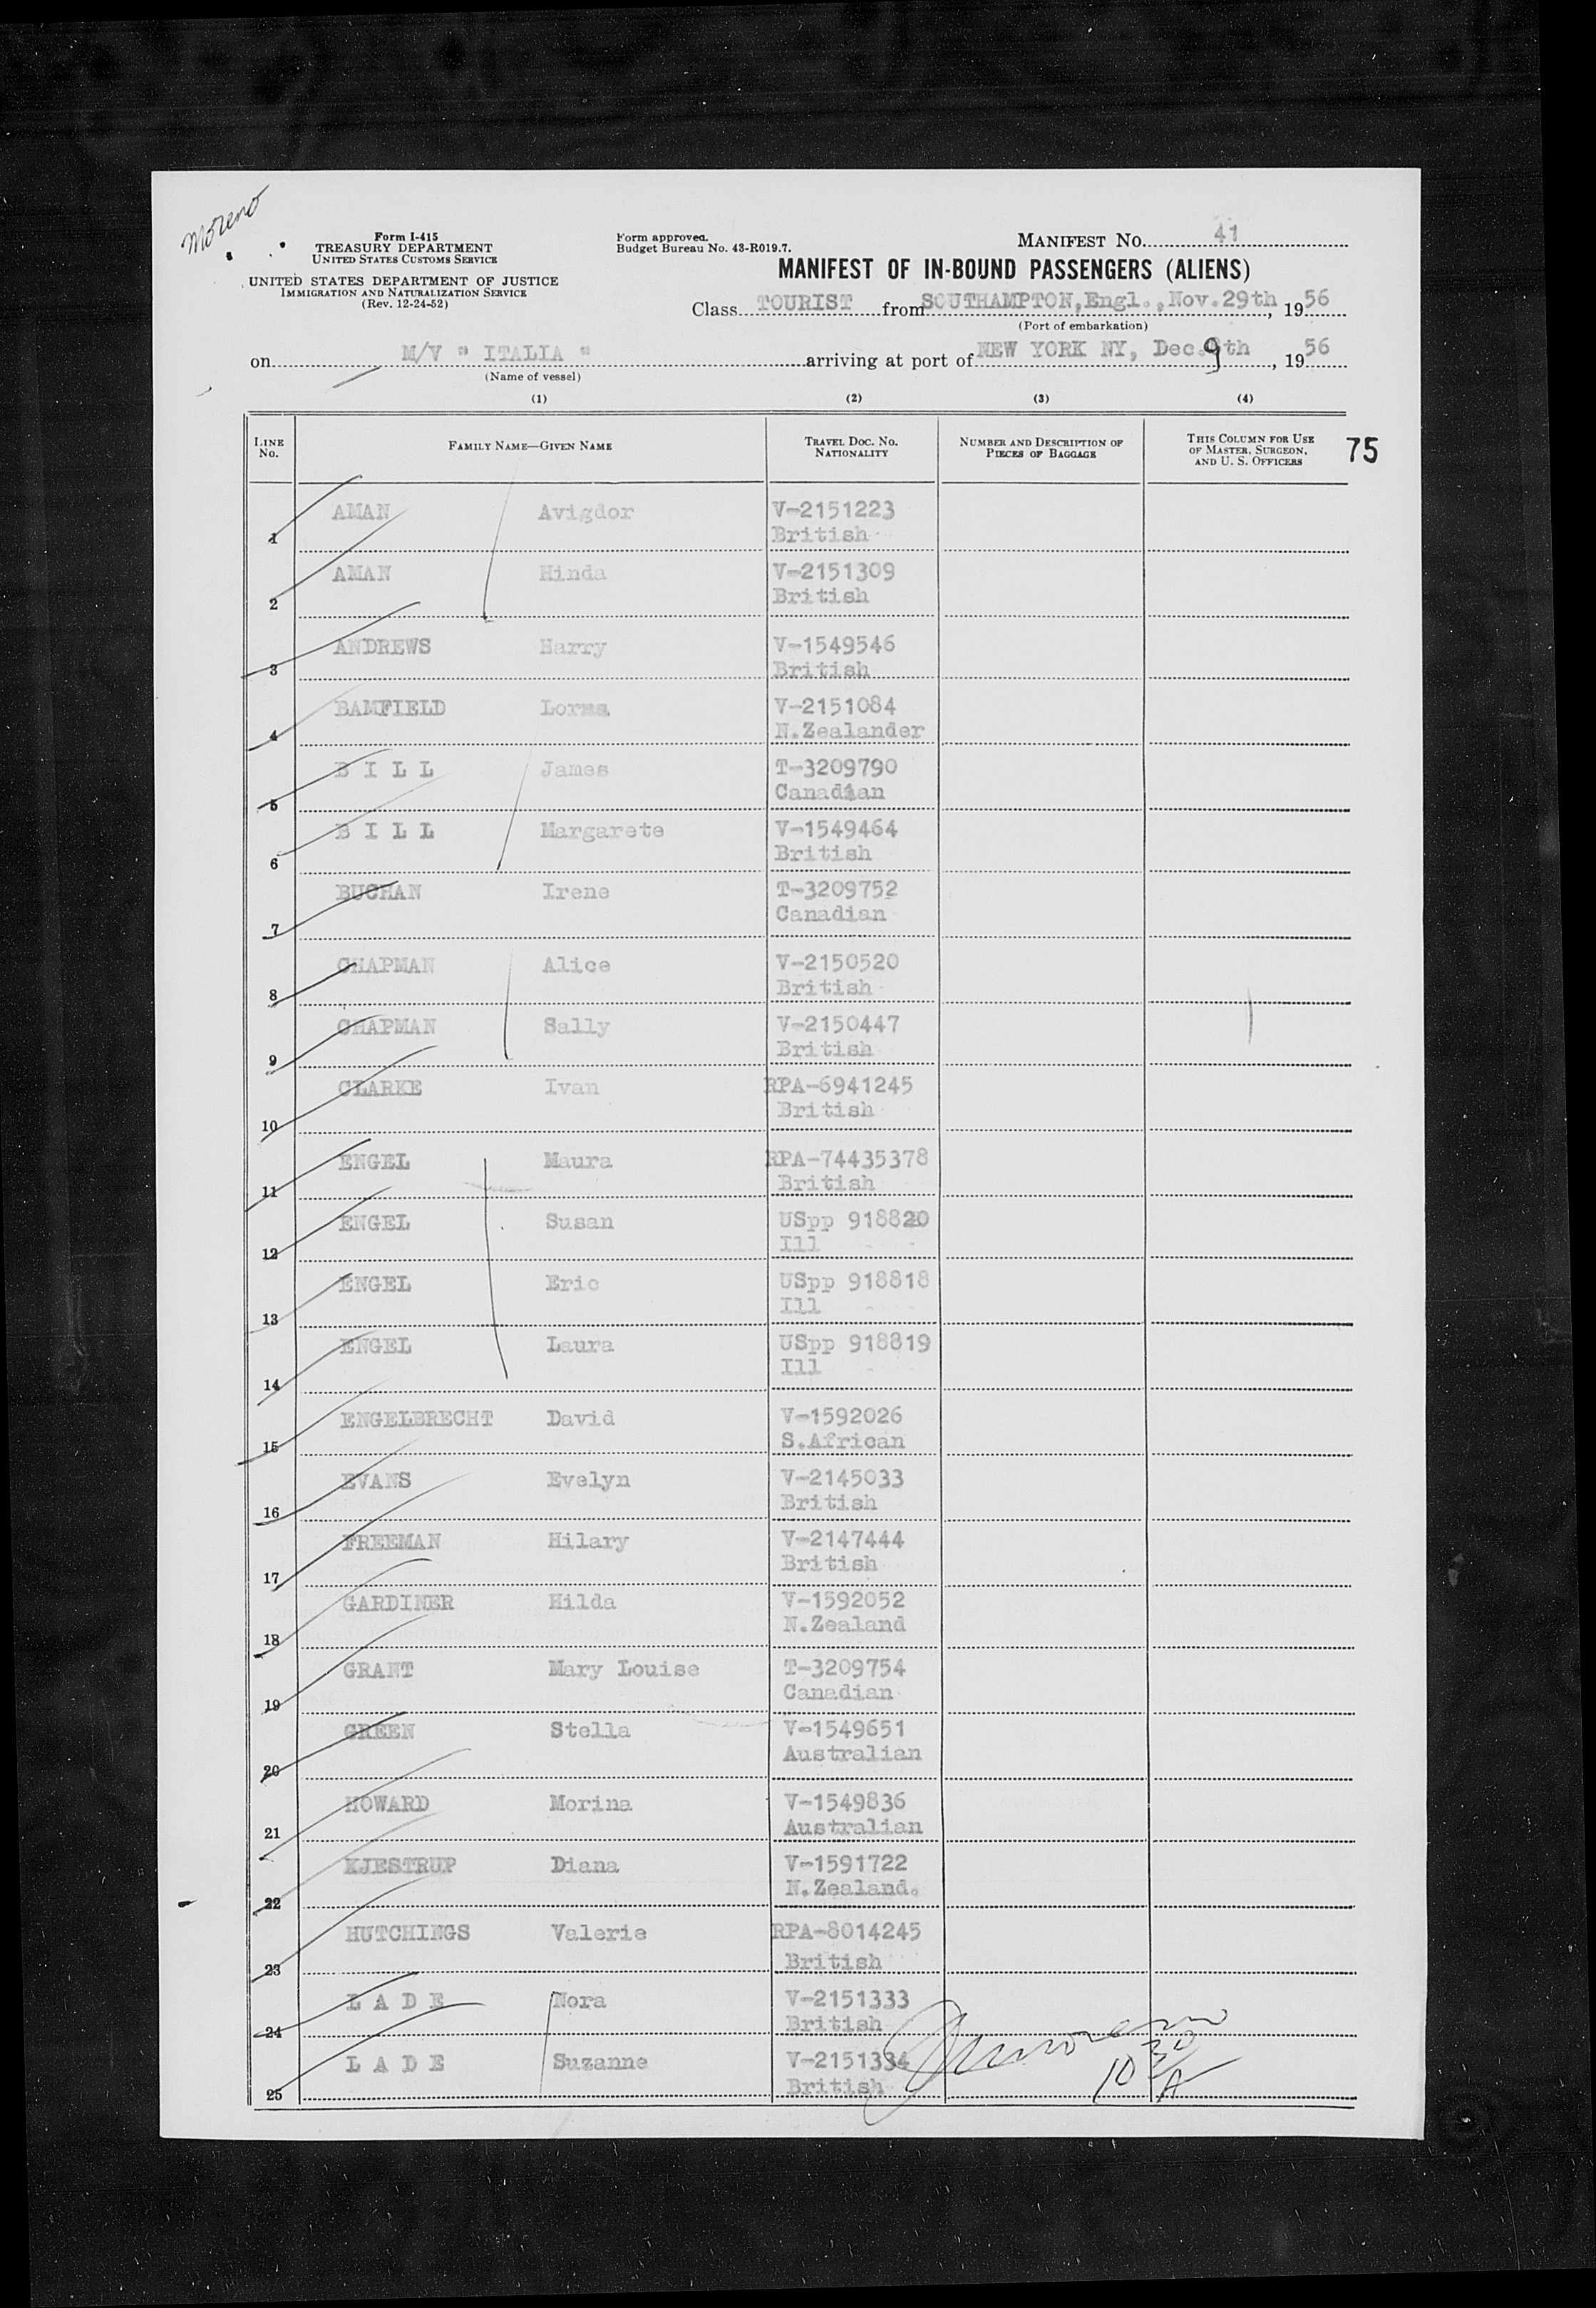 Moreno
Form I-415
TREASURY DEPARTMENT
UNITED STATES CUSTOMS SERVICE
UNITED STATES DEPARTMENT OF JUSTICE
IMMIGRATION AND NATURALIZATION SERVICE
(Rev. 12-24-52)
Form approved.
Budget Bureau No. 43-R019.7.
MANIFEST NO. 41
MANIFEST OF IN-BOUND PASSENGERS (ALIENS)
Class TOURIST from SOUTHAMPTON,Engl., Nov.29th, 1956
(Port of embarkation)
on M/V " ITALIA " arriving at port of NEW YORK NY, Dec. 9th, 1956
(Name of vessel)
(1) (2) (3) (4)
LINE No. FAMILY NAME—GIVEN NAME TRAVEL DOC. NO. NATIONALITY NUMBER AND DESCRIPTION OF PIECES OF BAGGAGE THIS COLUMN FOR USE OF MASTER, SURGEON, AND U. S. OFFICERS
75
1 AMAN Avigdor V-2151223
British
2 AMAN Hinda V-2151309
British
3 ANDREWS Harry V-1549546
British
4 BAMFIELD Lorma V-2151084
N.Zealander
5 B I L L James T-3209790
Canadian
6 B I L L Margarete V-1549464
British
7 BUCHAN Irene T-3209752
Canadian
8 CHAPMAN Alice V-2150520
British
9 CHAPMAN Sally V-2150447
British
10 CLARKE Ivan RPA-6941245
British
11 ENGEL Maura RPA-74435378
British
12 ENGEL Susan USpp 918820
Ill
13 ENGEL Eric USpp 918818
Ill
14 ENGEL Laura USpp 918819
Ill
15 ENGELBRECHT David V-1592026
S.African
16 EVANS Evelyn V-2145033
British
17 FREEMAN Hilary V-2147444
British
18 GARDINER Hilda V-1592052
N.Zealand
19 GRANT Mary Louise T-3209754
Canadian
20 GREEN Stella V-1549651
Australian
21 HOWARD Morina V-1549836
Australian
22 KJESTRUP Diana V-1591722
N.Zealand.
23 HUTCHINGS Valerie RPA-8014245
British
24 L A D E Nora V-2151333
British
25 L A D E Suzanne V-2151334
British
10 30 A